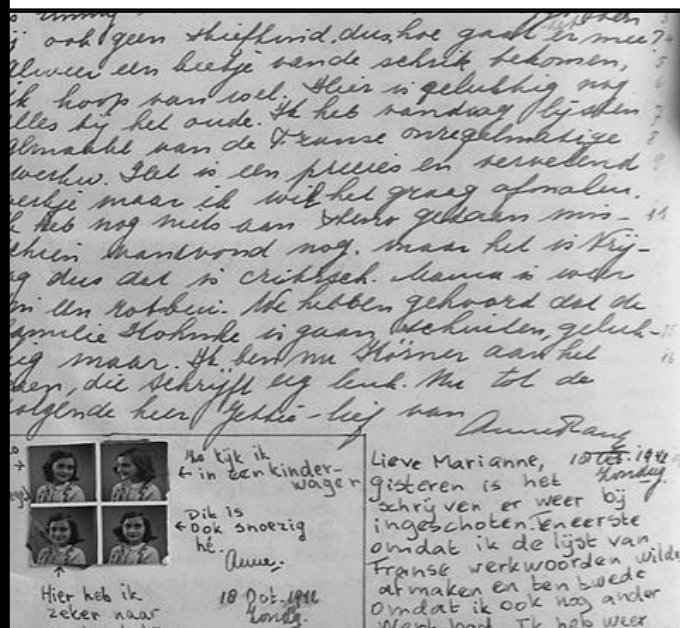 ook geen stiefkind, dus hoe gaat er mee?
alweer een beetje van de schrik bekomen,
ik hoop van wel. Hier is gelukkig nog
alles bij het oude. Ik heb vandaag lijsten
gemaakt van de Franse onregelmatige
werkw. Het is een precies en vervelend
werkje maar ik wil het graag afmaken.
heb nog niets aan Steno gedaan mis-
schien vanavond nog. maar het is Vrij-
ag dus dat is critisch. Mama is weer
een robbui. We hebben gehoord dat de
familie is gaan schuilen, geluk-
kig maar. Ik ben nu Körner aan het
ezen, die schrijft erg leuk. Nu tot de
volgende keer Jettie-lief van
Anne Frank
Zo kijk ik
in een kinder-
wagen
Dit is
ook snoezig
hé.
Anne.
Hier heb ik
zeker naar
18 Oct. 1942
Zondag.
Lieve Marianne, 1942
Zondag.
gisteren is het
schrijven er weer bij
ingeschoten. Teneerste
omdat ik de lijst van
Franse werkwoorden wilde
afmaken en ten twede
omdat ik ook nog ander
werk had. Ik heb weer
5
6
7
8
9
11
15
16